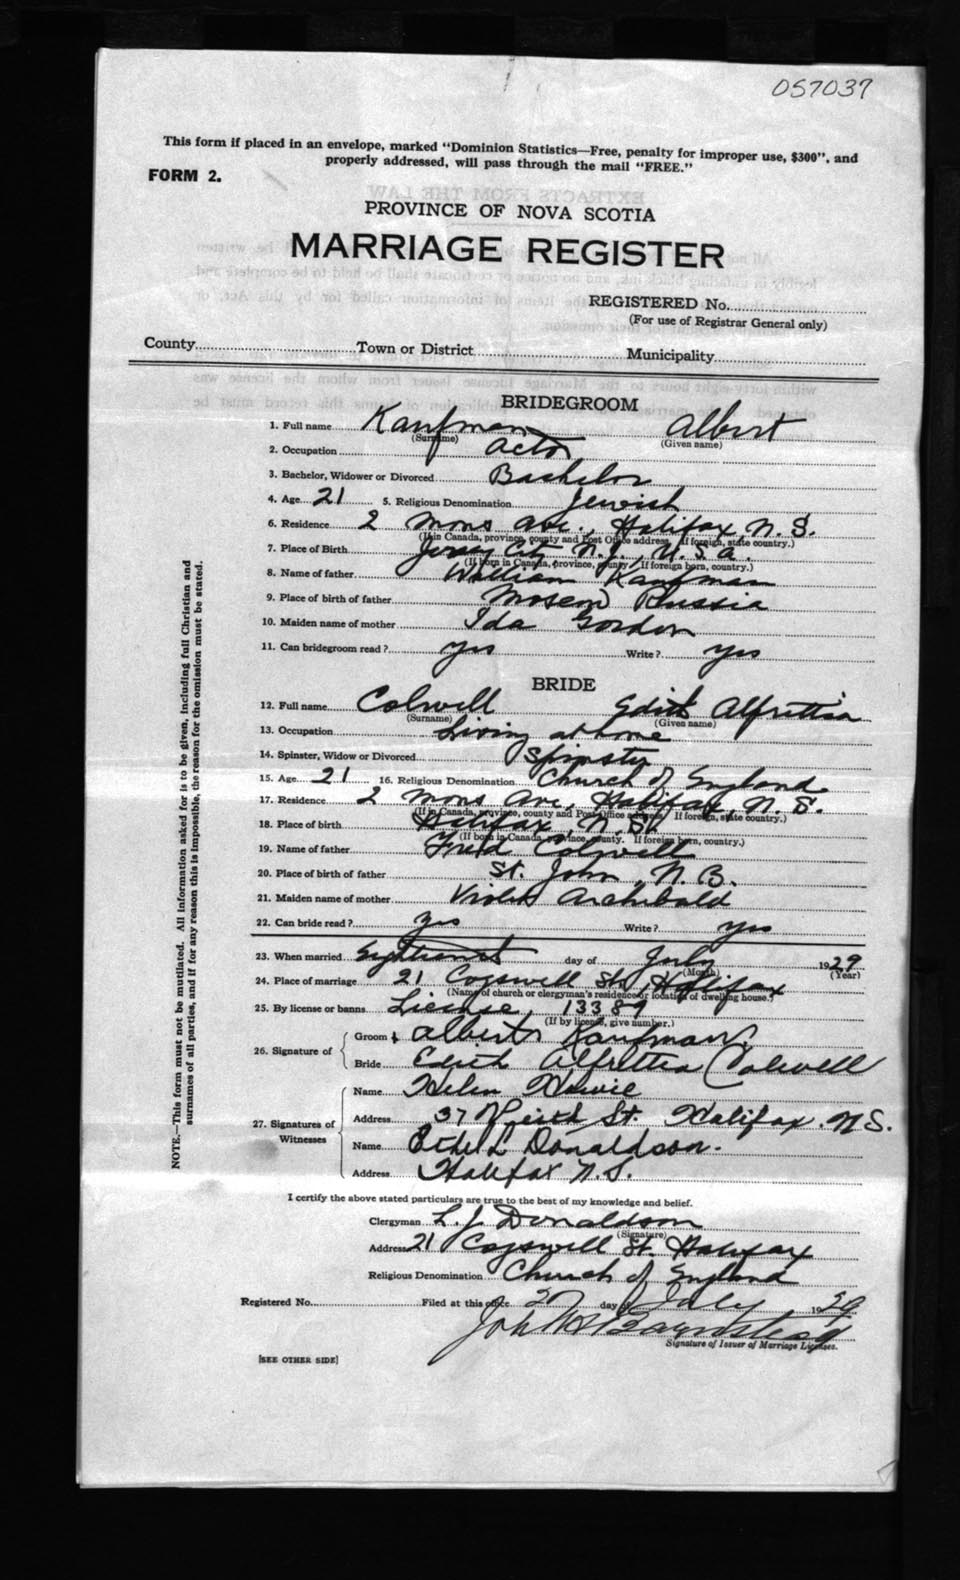 057037
This form if placed in an envelope, marked "Dominion Statistics—Free, penalty for improper use, $300", and
properly addressed, will pass through the mail "FREE."
FORM 2.
PROVINCE OF NOVA SCOTIA
MARRIAGE REGISTER
REGISTERED No.
(For use of Registrar General only)
County Town or District Municipality
BRIDEGROOM
1. Full name Kaufman Albert
(Surname) (Given name)
2. Occupation Actor
3. Bachelor, Widower or Divorced Bachelor
4. Age 21 5. Religious Denomination Jewish
6. Residence 2 Mons Ave., Halifax, N.S.
(If in Canada, province, county and Post Office address. If foreign, state country.)
7. Place of Birth Jersey City N.J., U.S.A.
(If born in Canada, province, county. If foreign born, country.)
8. Name of father William Kaufman
9. Place of birth of father Russia
10. Maiden name of mother Ida Gordon
11. Can bridegroom read? yes Write? yes
BRIDE
12. Full name Colwell Edith Alfrettia
(Surname) (Given name)
13. Occupation Living at home
14. Spinster, Widow or Divorced Spinster
15. Age 21 16. Religious Denomination Church of England
17. Residence 2 Mons Ave, Halifax, N.S.
(If in Canada, province, county and Post Office address. If foreign, state country.)
18. Place of birth Halifax, N.S.
(If born in Canada, province, county. If foreign born, country.)
19. Name of father Fred Colwell
20. Place of birth of father St. John, N.B.
21. Maiden name of mother Violet Archibald
22. Can bride read? yes Write? yes
23. When married day of July 1929
(Month) (Year)
24. Place of marriage 21 Cogswell St., Halifax
(Name of church or clergyman's residence or location of dwelling house.)
25. By license or banns License 13389
(If by license, give number.)
26. Signature of
Groom Albert Kaufman
Bride Edith Alfrettia Colwell
27. Signatures of Witnesses
Name Helen Howie
Address 37 St. Halifax. N.S.
Name Ethel L Donaldson.
Address Halifax N.S.
I certify the above stated particulars are true to the best of my knowledge and belief.
Clergyman L. J. Donaldson
(Signature)
Address 21 Cogswell St. Halifax
Religious Denomination Church of England
Registered No. Filed at this office day of July 1929
Signature of Issuer of Marriage Licenses.
[SEE OTHER SIDE]
NOTE.—This form must not be mutilated. All information asked for is to be given, including full Christian and
surnames of all parties, and if for any reason this is impossible, the reason for the omission must be stated.